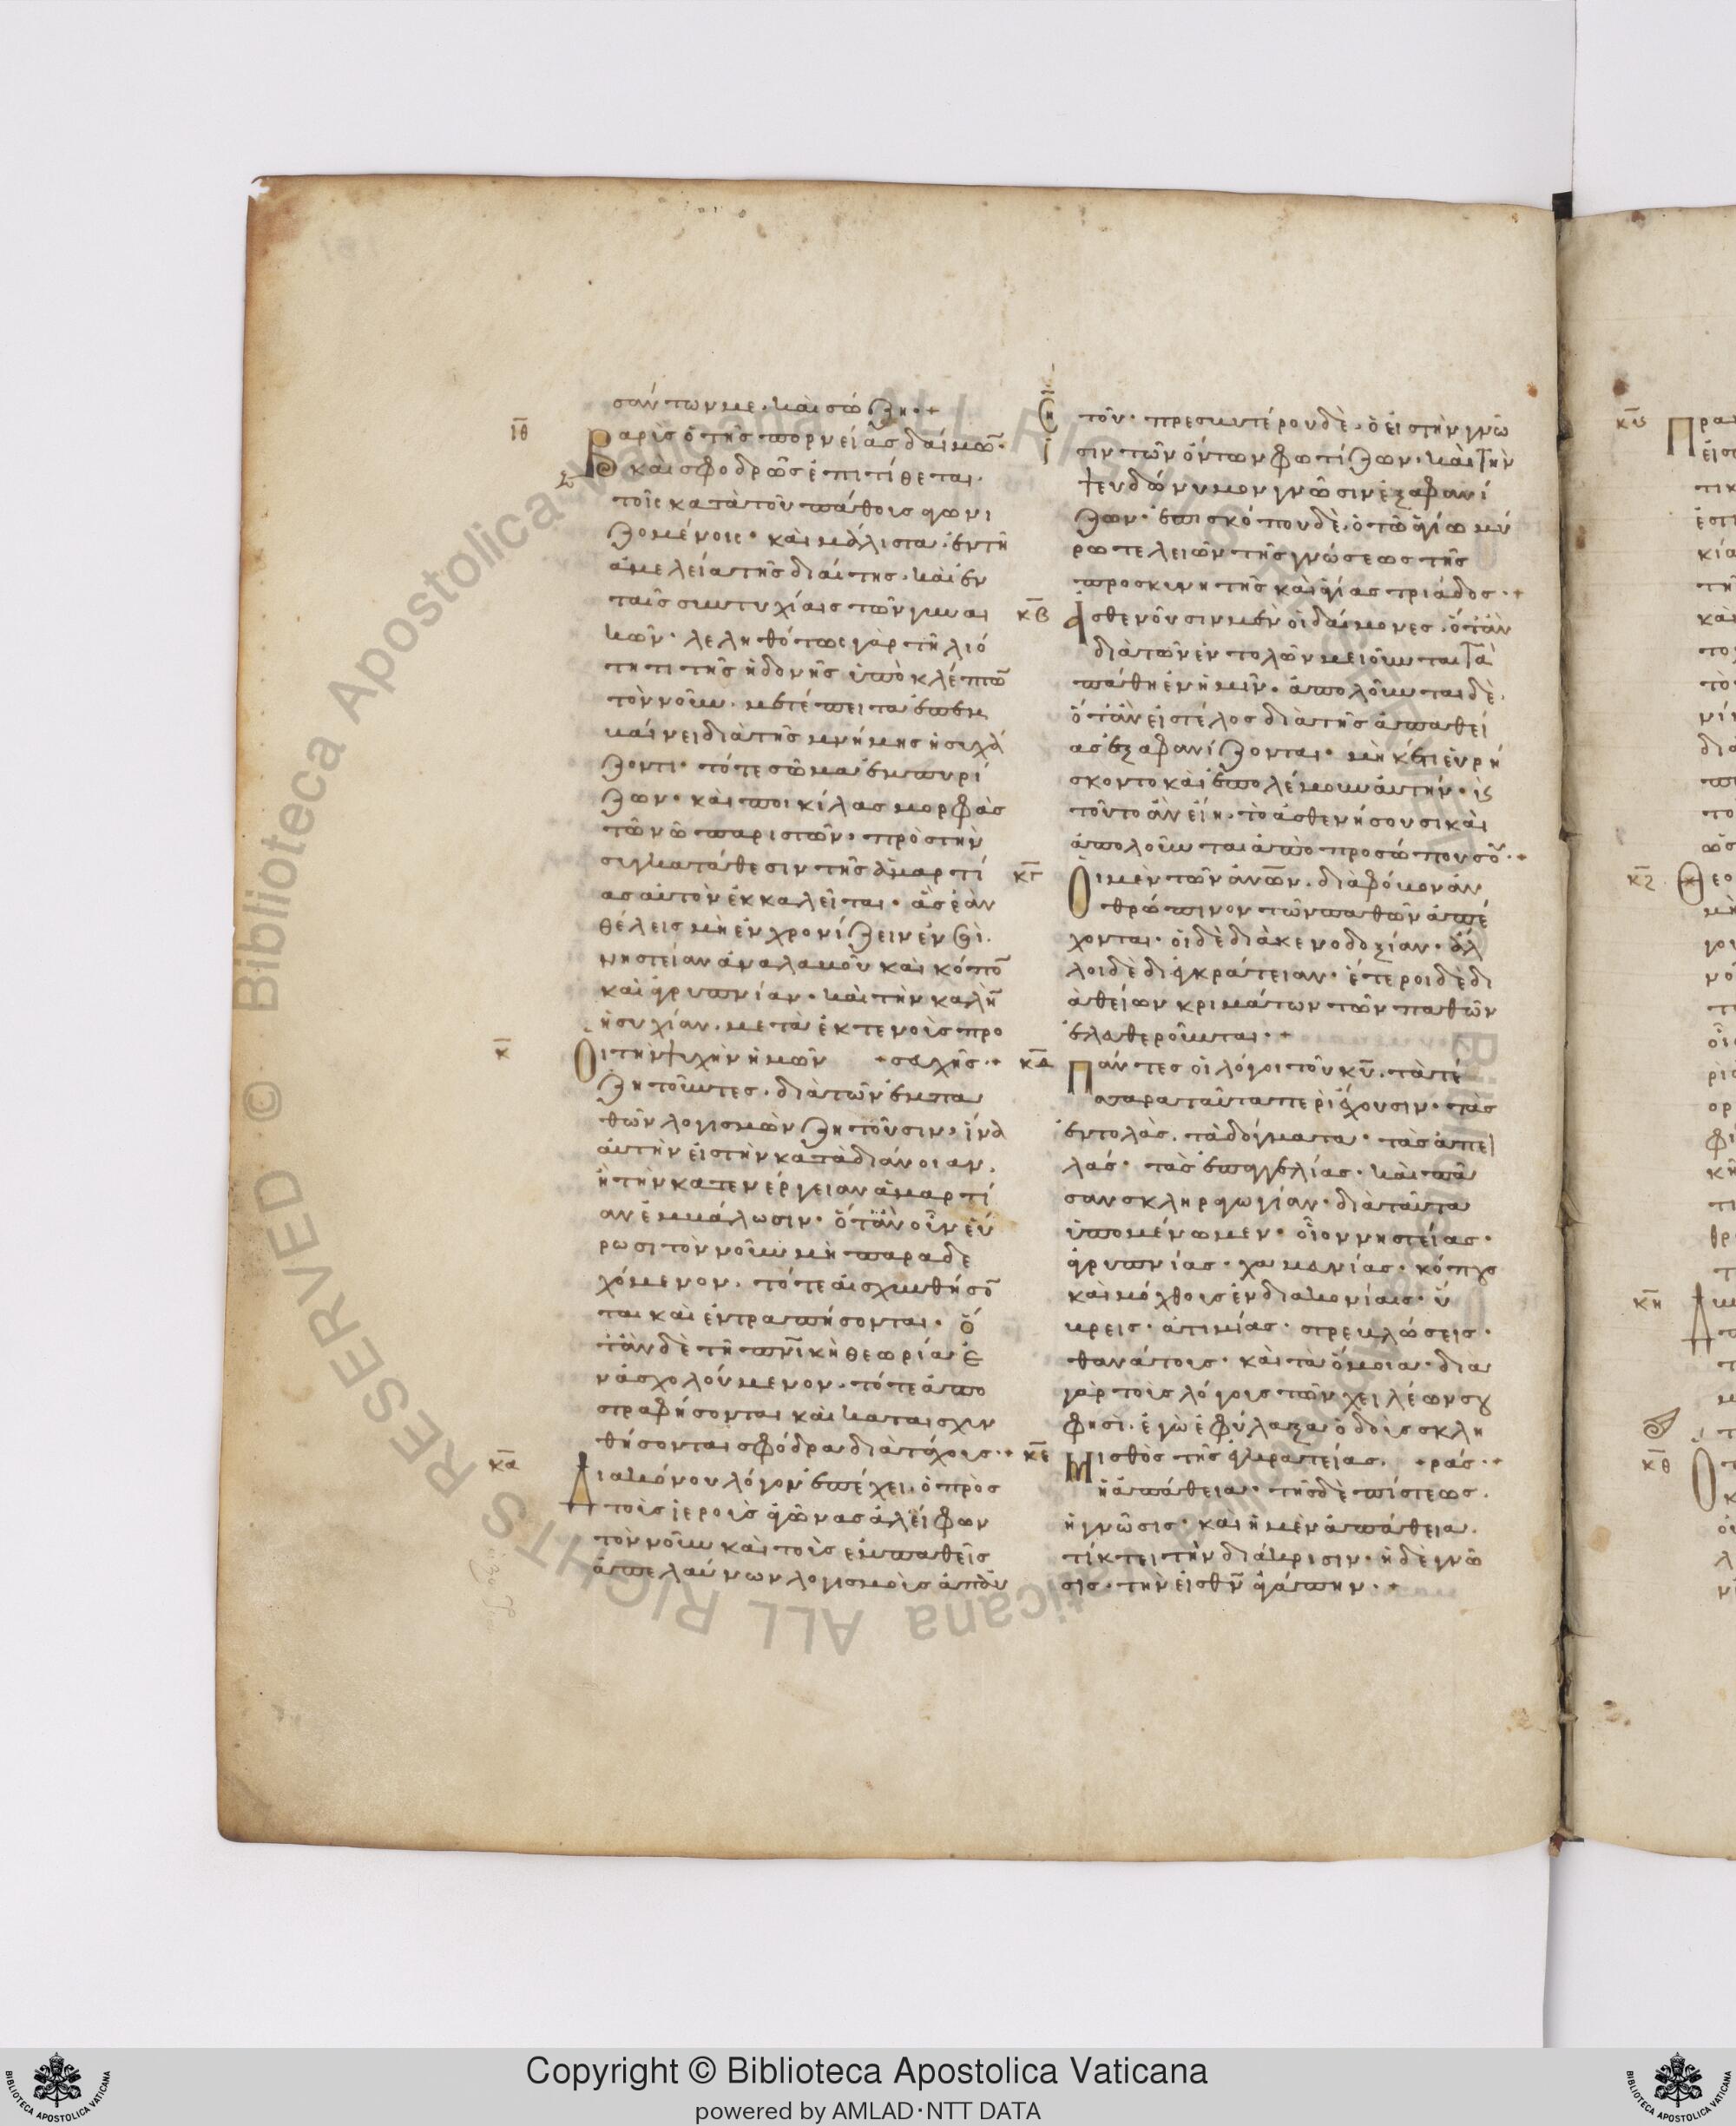 σάντων με. καὶ σώζη·+
ιθ
Βαρὺς ὁ τῆς πορνείας δαίμων·
καὶ σφοδρῶς ἐπιτίθεται.
τοῖς κατὰ τοῦ πάθους ἀγωνι
ζομένοις· καὶ μάλιστα. ἐν τῆ
ἀμελεία τῆς διαίτης. καὶ ἐν
ταῖς συντυχίαις τῶν γυναι
κῶν· λεληθότως γὰρ τῆ λιό
τητι τῆς ἡδονῆς ὑποκλέπτων
τὸν νοῦν. μετέπειτα ἐπεμ
βαίνει διὰ τῆς μνήμης ἡσυχά
ζοντι· τό τε σῶμα ἐμπυρί
ζων· καὶ ποικίλας μορφὰς
τῶ νῶ παριστῶν· πρὸς τὴν
συγκατάθεσιν τῆς ἁμαρτί
ας αὐτὸν ἐκκαλεῖται· ἃς ἐὰν
θέλεις μὴ ἐνχρονίζειν ἐν σοὶ.
νηστείαν ἀναλαβοῦ καὶ κόπον
καὶ ἀγρυπνίαν· καὶ τὴν καλὴν
ἡσυχίαν. μετὰ ἐκτενοῦς προ
κ
Οἱ τὴν ψυχὴν ἡμῶν +σευχῆς·+
ζητοῦντες. διὰ τῶν ἐμπα
θῶν λογισμῶν ζητοῦσιν· ἵνα
αὐτὴν εἰς τὴν κατὰ διάνοιαν.
ἢ τὴν κατ' ἐνέργειαν ἁμαρτί
αν ἐμβάλωσιν· ὅτ' ἂν οὖν εὕ
ρωσι τὸν νοῦν μὴ παραδε
χόμενον. τότε αἰσχυνθήσον
ται καὶ ἐντραπήσονται· ὅ
τ' ἂν δὲ τῆ πνικῆ θεωρία ἐ
νασχολούμενον. τότε ἀπο
στραφήσονται καὶ καταισχυν
θήσονται σφόδρα διὰ τάχους·+
κα
Διακόνου λόγον ἐπέχει. ὁ πρὸς
τοὺς ἱεροὺς ἀγῶνας ἀλείφων
τὸν νοῦν καὶ τοὺς ἐμπαθεῖς
ἀπελαύνων λογισμοὺς ἀπ' αὐ
τοῦ· πρεσβυτέρου δὲ. ὁ εἰς τὴν γνῶ
σιν τῶν ὄντων φωτίζων. καὶ τὴν
ψευδώνυμον γνῶσιν ἐξαφανί
ζων· ἐπισκόπου δὲ. ὁ τῶ ἁγίω μύ
ρω τελειῶν τῆς γνώσεως τῆς
προσκυνητῆς καὶ ἁγίας τριάδος·+
κβ
Ἀσθενοῦσιν μὲν οἱ δαίμονες. ὅτ' ἂν
διὰ τῶν ἐντολῶν μειοῦνται τὰ
πάθη ἐν ἡμῖν· ἀπολοῦνται δὲ.
ὅτ' ἂν εἰς τέλος διὰ τῆς ἀπαθεί
ας ἐξαφανίζονται· μὴ κέτι εὑρή
σκοντο καὶ ἐπολέμουν αὐτήν·
τοῦτο ἂν εἴη. τὸ ἀσθενήσουσι καὶ
ἀπολοῦνται ἀπὸ προσώπου σου·+
κγ
Οἱ μὲν τῶν ἀνων. διὰ φόβον ἀν
θρώπινον τῶν παθῶν ἀπέ
χονται· οἱ δὲ διὰ κενοδοξίαν· ἄλ
λοι δὲ δι' ἐγκράτειαν· ἕτεροι δὲ δι
ὰ θείων κριμάτων τῶν παθῶν
ἐλευθεροῦνται·+
κδ
Πάντες οἱ λόγοι τοῦ κυ. τὰ τέσ
σαρα ταῦτα περιέχουσιν· τὰς
ἐντολὰς. τὰ δόγματα· τὰς ἀπει
λάς· τὰς ἐπαγγελίας· καὶ πᾶ
σαν σκληραγωγίαν· διὰ ταῦτα
ὑπομένωμεν· οἷον νηστείας·
ἀγρυπνίας· χαμευνίας· κόπους
καὶ μόχθους ἐν διακονίαις· ὕ
βρεις· ἀτιμίας· στρεβλώσεις·
θανάτους· καὶ τὰ ὅμοια· διὰ
γὰρ τοὺς λόγους τῶν χειλέων σου
φησὶ. ἐγὼ ἐφύλαξα ὁδοὺς σκλη
κε
Μισθὸς τῆς ἐγκρατείας. +ράς·+
ἡ ἀπάθεια· τῆς δὲ πίστεως.
ἡ γνῶσις· καὶ ἡ μὲν ἀπάθεια.
τίκτει τὴν διάκρισιν· ἡ δὲ γνῶ
σις· τὴν εἰς θν ἀγάπην·+
κς
κζ
κη
κθ
Copyright © Biblioteca Apostolica Vaticana
powered by AMLAD·NTT DATA